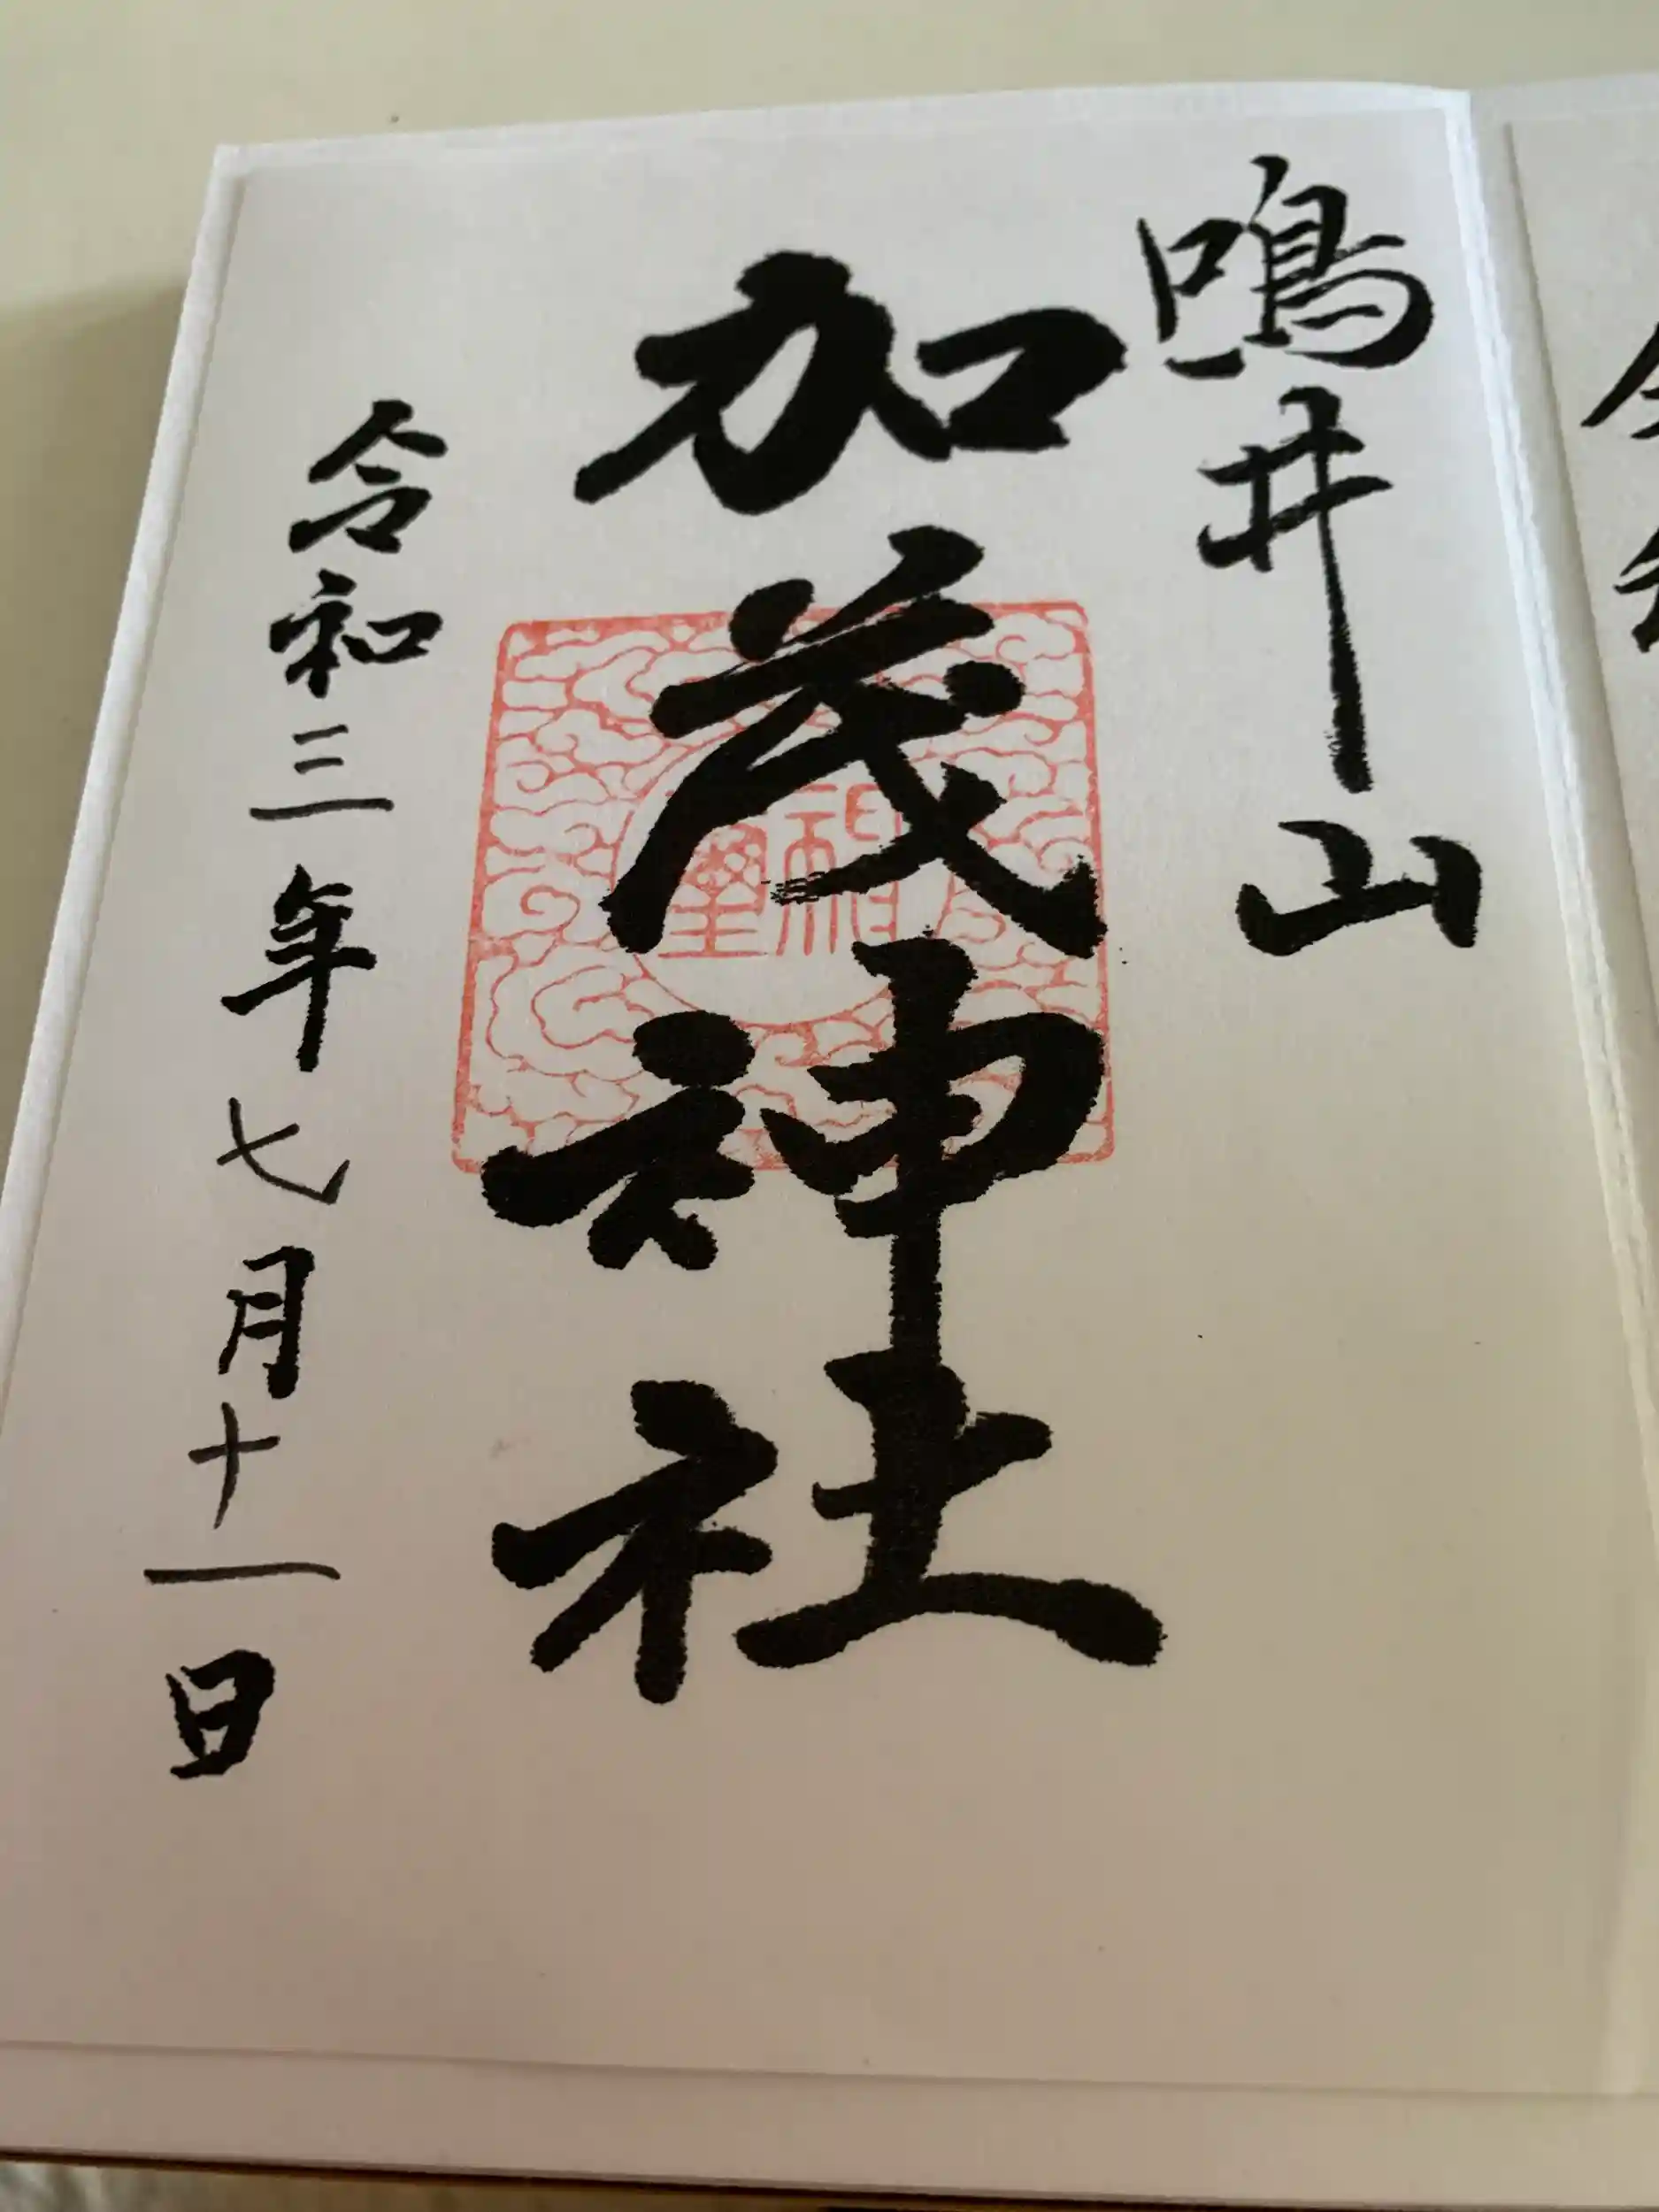 鳴井山
加茂神社
令和三年七月十一日